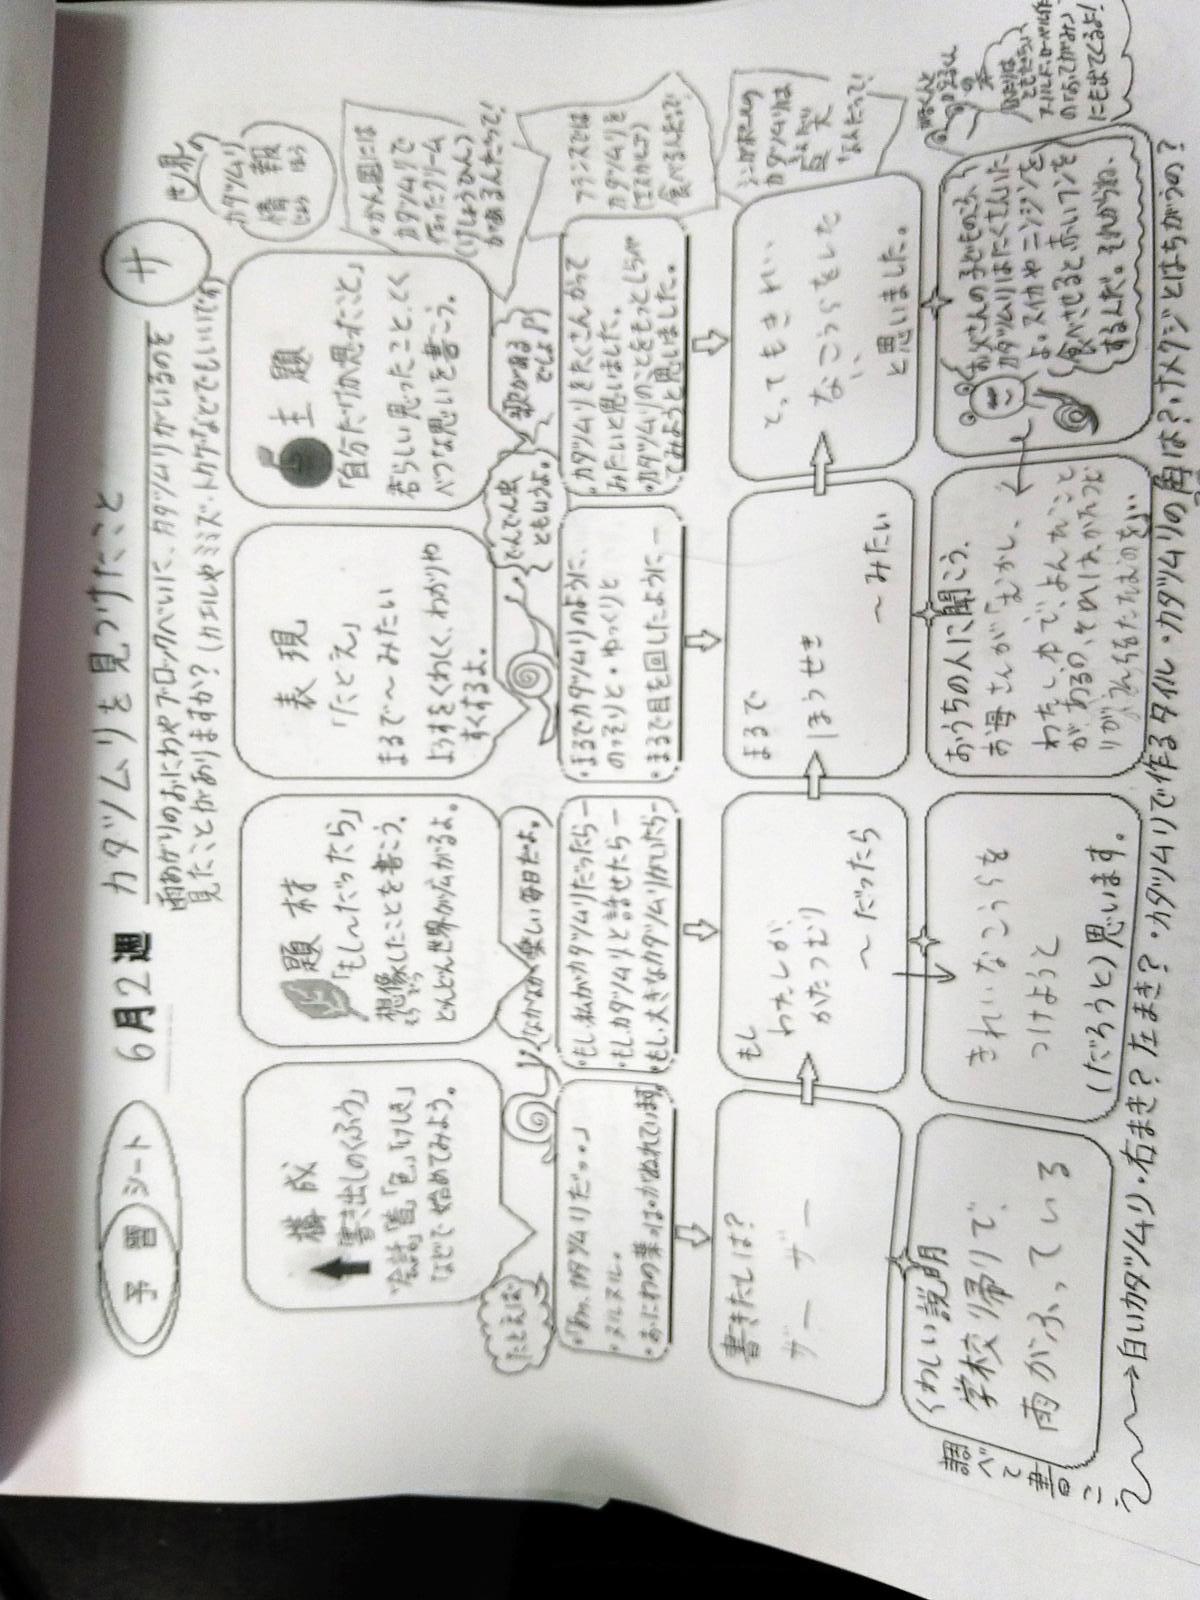 予習シート
6月2週 カタツムリを見つけたこと
サ
雨あがりのおにわやブロックべいに、カタツムリがいるのを
見たことがありますか?(カエルやミミズ・トカゲなどでもいいです)
世界の
カタツムリ
情報
じょうほう
構成
書き出しのくふう
「会話」「音」「色」「けしき」
などで始めてみよう。
題材
「もし〜だったら」
想像したことを書こう。
そうぞう
どんどん世界が広がるよ。
表現
「たとえ」
まるで〜みたい
ようすをくわしく、わかりや
すくするよ。
主題
「自分だけが思ったこと」
君らしい思ったこと、とく
べつな思いを書こう。
・かん国には
カタツムリで
作ったクリーム
(けしょうひん)
があるんだって!
フランスでは
カタツムリを
(エスカルゴ)
食べるんだって!
カタツムリは
なんだって!
たとえば
なかなか楽しい毎日だよ。
でんでん虫
ともいうよ。
歌がある
でしょ
・「あっ、カタツムリだっ。」
・ヌルヌル。
・おにわの葉っぱがぬれています。
・もし、私がカタツムリだったらー
・もし、カタツムリと話せたらー
・もし、大きなカタツムリがいたらー
・まるでカタツムリのように、
のっそりと・ゆっくりと
・まるで目を回したようにー
・カタツムリをたくさんかって
みたいと思いました。
・カタツムリのことをもっとしらべ
てみようと思いました。
書きだしは?
ザー ザー
もし
わたしが、
かたつむり
〜だったら
まるで
ほうせき
〜みたい
とってもきれい
なこうらをした
い、
と思いました。
調べて書こう
くわしい説明
学校帰りで、
雨がふっている
きれいなこうらを
つけようと
(だろうと)思います。
おうちの人に聞こう。
お母さんが「むかし、
わたし、ゆで、よんだこと
があるの、それはかたつむ
お父さんの子どものころ
カタツムリはたくさんいた
よ。スイカやニンジンを
食べさせると赤いフンを
するんだ。それからね、
の本
ともだち」
にも出てくるよ!
→白いカタツムリ・右まき?左まき?・カタツムリで作るタイル・カタツムリの角は?・ナメクジとはちがうの?